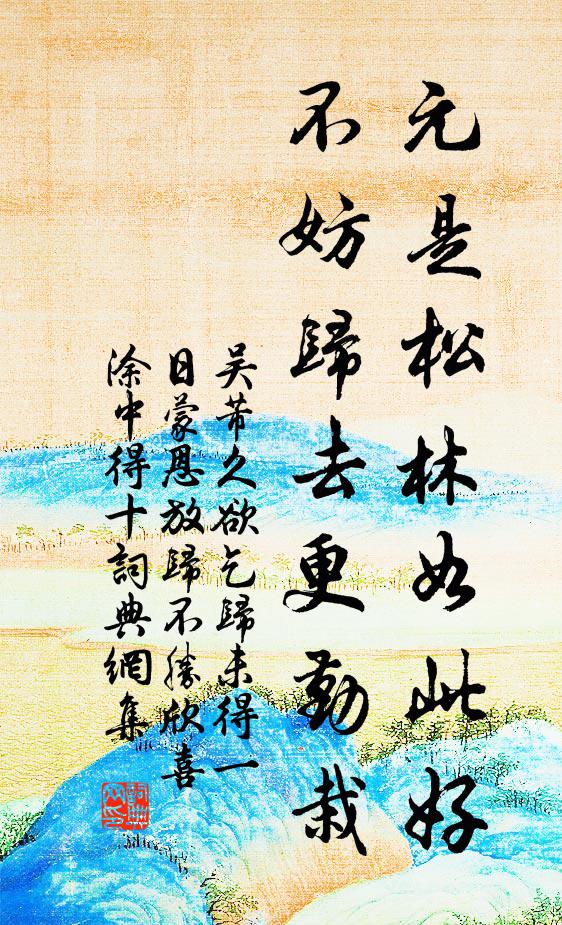 元是松林如此好
不妨歸去更勤栽
吴芾久欲乞歸未得一
日蒙恩放歸不勝欣喜
涂中得十詞典網集